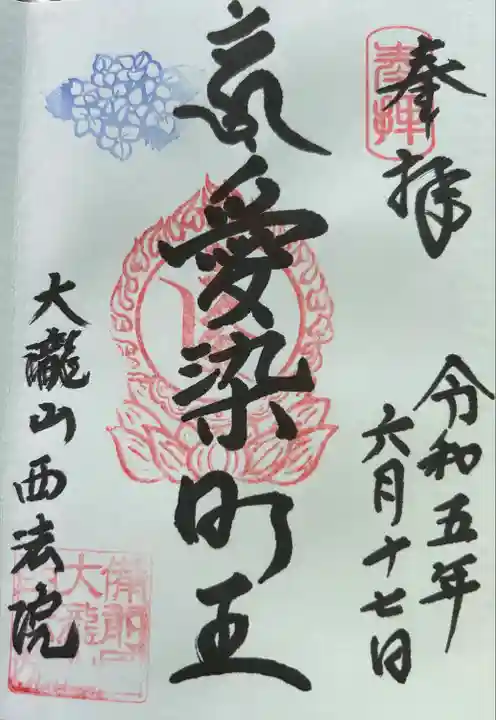 奉拝
令和五年
六月十七日
愛染明王
大瀧山西法院
奉拝
備前
大瀧